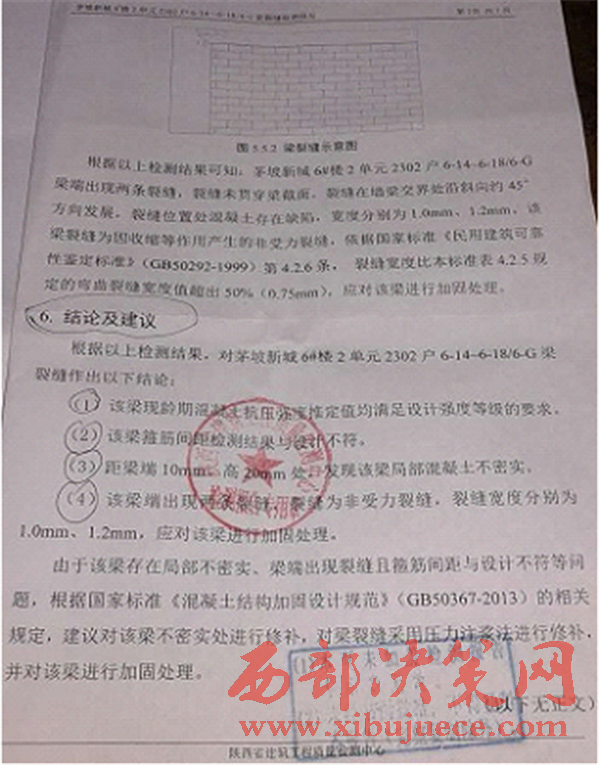 茅坡新城6#楼2单元2302户6-14~6-18/6-G梁裂缝检测报告
图 5.5.2 梁裂缝示意图
根据以上检测结果可知：茅坡新城 6#楼 2 单元 2302 户 6-14~6-18/6-G
梁端出现两条裂缝，裂缝未贯穿梁截面，裂缝在墙梁交界处沿斜向约 45°
方向发展，裂缝位置处混凝土存在缺陷，宽度分别为 1.0mm、1.2mm。该
梁裂缝为因收缩等作用产生的非受力裂缝，依据国家标准《民用建筑可靠
性鉴定标准》（GB50292-1999）第 4.2.6 条， 裂缝宽度比本标准表 4.2.5 规
定的弯曲裂缝宽度值超出 50%（0.75mm），应对该梁进行加固处理。
6. 结论及建议
根据以上检测结果，对茅坡新城 6#楼 2 单元 2302 户 6-14~6-18/6-G 梁
裂缝作出以下结论：
（1）该梁现龄期混凝土抗压强度推定值均满足设计强度等级的要求。
（2）该梁箍筋间距检测结果与设计不符。
（3）距梁端 10mm、高 20mm 处，发现该梁局部混凝土不密实。
（4）该梁端出现两条裂缝，裂缝为非受力裂缝，裂缝宽度分别为
1.0mm、1.2mm，应对该梁进行加固处理。
由于该梁存在局部不密实、梁端出现裂缝且箍筋间距与设计不符等问
题，根据国家标准《混凝土结构加固设计规范》（GB50367-2013）的相关
规定，建议对该梁不密实处进行修补，对梁裂缝采用压力注浆法进行修补，
并对该梁进行加固处理。
（以下无正文）
西部决策网
www.xibujuece.com
陕西省建筑工程质量监测中心